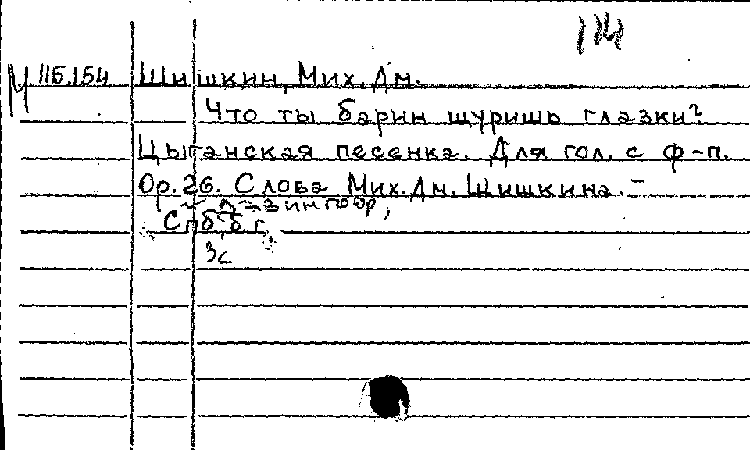 М 115.154 Шишкин, Мих. Дм.
Что ты барин щуришь глазки?
Цыганская песенка. Для гол. с ф-п.
Op. 26. Слова Мих. Дм. Шишкина. –
Спб, б. г.
3с